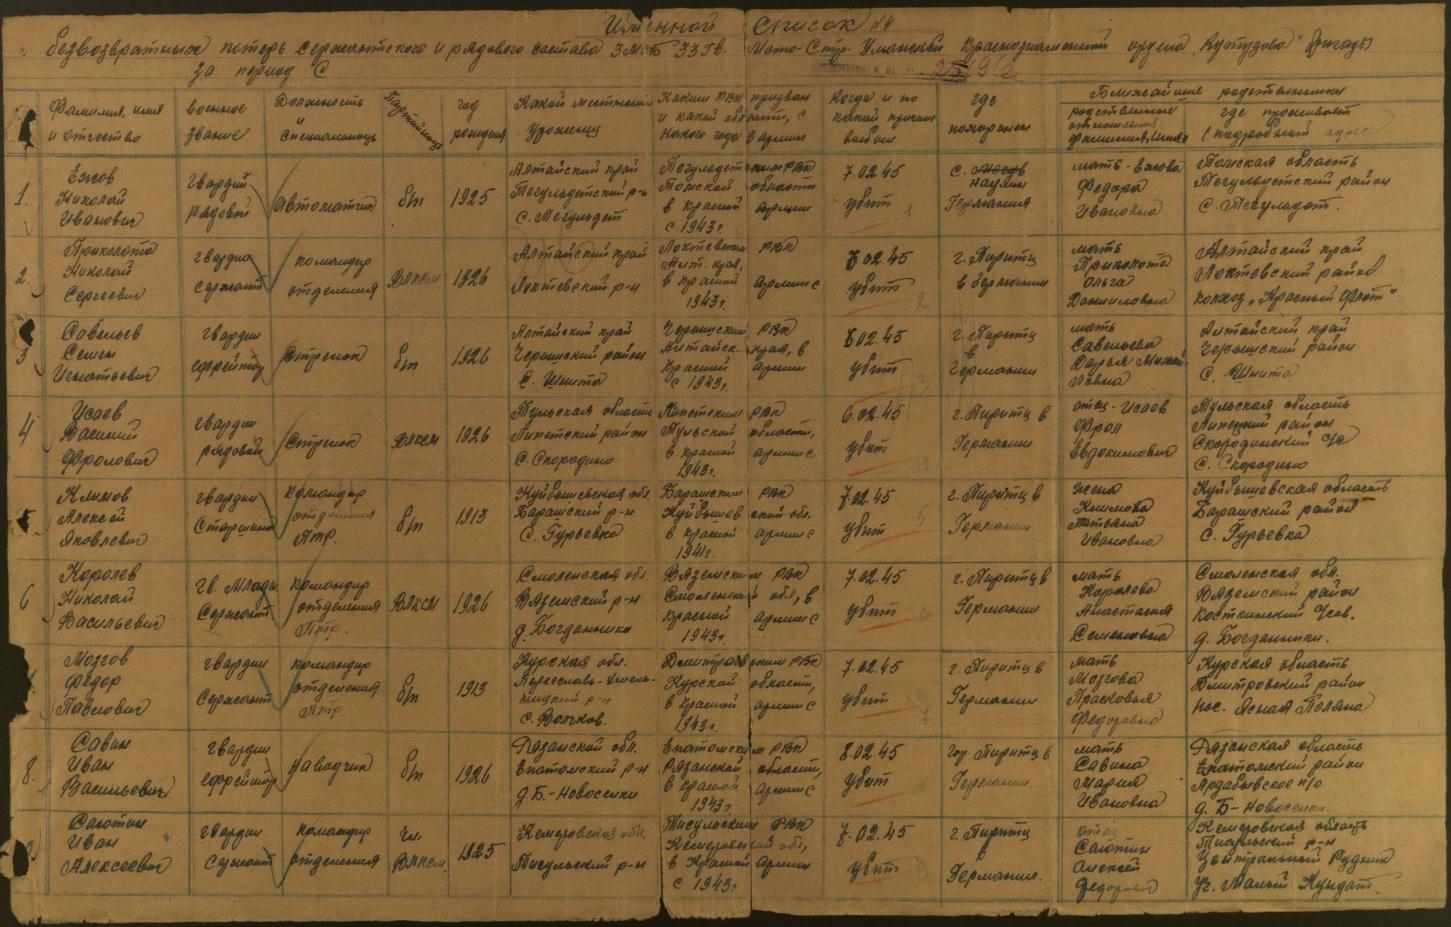 Именной список №4
безвозвратных потерь сержантского и рядового состава 3 МСБ 33 Гв. Мото-Стр. Уманской Краснознаменной ордена Кутузова бригады
за период с
Фамилия, имя и отчество
военное звание
Должность и специальность
Партийность
год рождения
Какой местности уроженец
Каким РВК призван и какой области, с какого года в армии
Когда и по какой причине выбыл
где похоронен
Ближайшие родственники
родственные отношения фамилия, имя
где проживает (подробный адрес
1.
Ежов Николай Иванович
гвардии рядовой
автоматчик
б/п
1925
Алтайский край Тегульдетский р-н с. Тегульдет
Тегульдетским РВК Томской области в красной армии с 1943 г.
7.02.45 убит
1
с. Германия
мать - Ежова Федора Ивановна
Томская область Тегульдетский район с. Тегульдет.
2.
Приколота Николай Сергеевич
гвардии сержант
командир отделения
ВЛКСМ
1926
Алтайский край Локтевский р-н
Локтевским РВК Алт. края, в красной армии с 1943 г.
8.02.45 убит
2
г. Пиритц в Германии
мать Приколота Ольга Данииловна
Алтайский край Локтевский район колхоз „Красный Флот"
3
Савельев Семен Игнатьевич
гвардии ефрейтор
Стрелок
б/п
1926
Алтайский край Чарышский район с.
Чарышским РВК Алтайск. края, в красной армии с 1943 г.
8.02.45 убит
3
г. Пиритц в Германии
мать Савельева Дарья Михайловна
Алтайский край Чарышский район с.
4
Исаев Василий Фролович
гвардии рядовой
Стрелок
ВЛКСМ
1926
Тульская область Липетский район с. Скородино
Липетским РВК Тульской области, в красной армии с 1943 г.
6.02.45 убит
г. Пиритц в Германии
отец - Исаев Фрол Евдокимович
Тульская область Липецкий район Скородинский с/с с. Скородино
5
Климов Алексей Яковлевич
гвардии Старшина
командир отделения ПТР.
б/п
1913
Куйбышевская обл. Барашский р-н с. Гурьевка
Барашским РВК Куйбышевской обл. в красной армии с 1941 г.
7.02.45 убит
5
г. Пиритц в Германии
жена Климова Татьяна Ивановна
Куйбышевская область Барашский район с. Гурьевка
6
Королев Николай Васильевич
гв. Младш Сержант
командир отделения ПТР.
ВЛКСМ
1926
Смоленская обл. Вяземский р-н д. Богданинки
Вяземским РВК Смоленской обл, в красной армии с 1943 г.
7.02.45 убит
6
г. Пиритц в Германии
мать Королева Анастасия Семеновна
Смоленская обл. Вяземский район Костинский с/сов. д. Богданинки.
Мозгов Федор Павлович
гвардии Сержант
командир отделения ПТР
б/п
1913
Курская обл. р-н с. Волчков.
Дмитровским РВК Курской области, в красной армии с 1943 г.
7.02.45 убит
7
г. Пиритц в Германии
мать Мозгова Прасковья Федоровна
Курская область Дмитровский район пос. Ясная Поляна
8.
Савин Иван Васильевич
гвардии ефрейтор
наводчик
б/п
1926
Рязанской обл. Елатомский р-н д. Б.-Новоселки
Елатомским РВК Рязанской области, в красной армии с 1943 г.
8.02.45 убит
Гор. Пиритц в Германии
мать Савина Мария Ивановна
Рязанская область Елатомский район Ардабьевское п/о д. Б-Новоселки.
Саютин Иван Алексеевич
гвардии Сержант
командир отделения
чл. ВЛКСМ
1925
Кемеровская обл. Тисульский р-н
Тисульским РВК Кемеровской обл, в Красной армии с 1943 г.
7.02.45 убит
г. Пиритц в Германии.
отец Саютин Алексей Федорович
Кемеровская область Тисульский р-н Центральный Рудник уч. Малый Кундат.